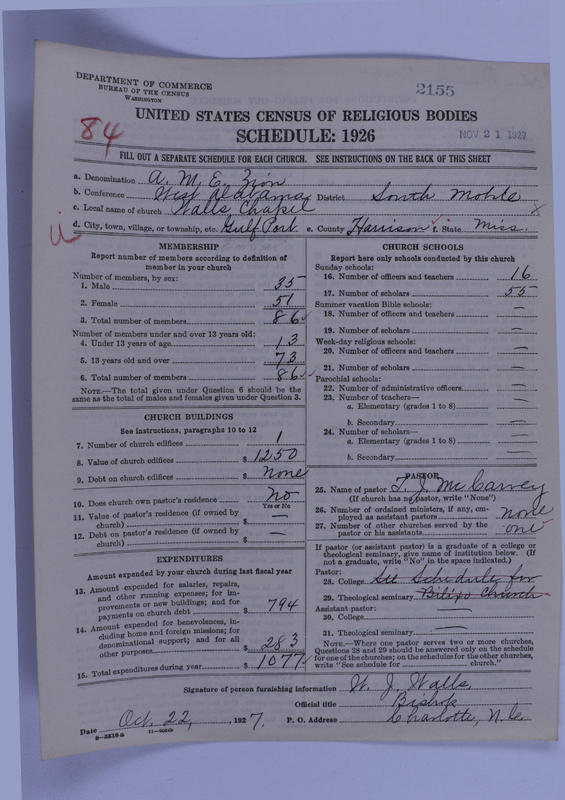 DEPARTMENT OF COMMERCE
BUREAU OF THE CENSUS
WASHINGTON
2155
UNITED STATES CENSUS OF RELIGIOUS BODIES
84
SCHEDULE: 1926
NOV 21 1927
FILL OUT A SEPARATE SCHEDULE FOR EACH CHURCH. SEE INSTRUCTIONS ON THE BACK OF THIS SHEET
a. Denomination A. M. E. Zion
b. Conference West Alabama District South Mobile
c. Local name of church Walls Chapel
d. City, town, village, or township, etc. Gulf Port e. County Harrison f. State Miss.
MEMBERSHIP
Report number of members according to definition of
member in your church
Number of members, by sex:
1. Male 35
2. Female 51
3. Total number of members 86
Number of members under and over 13 years old:
4. Under 13 years of age 13
5. 13 years old and over 73
6. Total number of members 86
NOTE.—The total given under Question 6 should be the
same as the total of males and females given under Question 3.
CHURCH BUILDINGS
See instructions, paragraphs 10 to 12
7. Number of church edifices 1
8. Value of church edifices $ 1250
9. Debt on church edifices $ None
10. Does church own pastor's residence No
Yes or No
11. Value of pastor's residence (if owned by
church) $ —
12. Debt on pastor's residence (if owned by
church) $ —
EXPENDITURES
Amount expended by your church during last fiscal year
13. Amount expended for salaries, repairs,
and other running expenses; for im-
provements or new buildings; and for
payments on church debt $ 794
14. Amount expended for benevolences, in-
cluding home and foreign missions; for
denominational support; and for all
other purposes $ 283
15. Total expenditures during year $ 1077
CHURCH SCHOOLS
Report here only schools conducted by this church
Sunday schools:
16. Number of officers and teachers 16
17. Number of scholars 55
Summer vacation Bible schools:
18. Number of officers and teachers —
19. Number of scholars —
Week-day religious schools:
20. Number of officers and teachers —
21. Number of scholars —
Parochial schools:
22. Number of administrative officers —
23. Number of teachers—
a. Elementary (grades 1 to 8) —
b. Secondary —
24. Number of scholars—
a. Elementary (grades 1 to 8) —
b. Secondary —
PASTOR
25. Name of pastor T. J. McCarvey
(If church has no pastor, write "None")
26. Number of ordained ministers, if any, em-
ployed as assistant pastors none
27. Number of other churches served by the
pastor or his assistants one
If pastor (or assistant pastor) is a graduate of a college or
theological seminary, give name of institution below. (If
not a graduate, write "No" in the space indicated.)
Pastor:
28. College See Schedule for
29. Theological seminary Biloxi Church
Assistant pastor:
30. College —
31. Theological seminary —
NOTE.—Where one pastor serves two or more churches,
Questions 28 and 29 should be answered only on the schedule
for one of the churches; on the schedules for the other churches,
write "See schedule for church."
Signature of person furnishing information W. J. Walls,
Official title Bishop
Date Oct. 22, 1927. P. O. Address Charlotte, N. C.